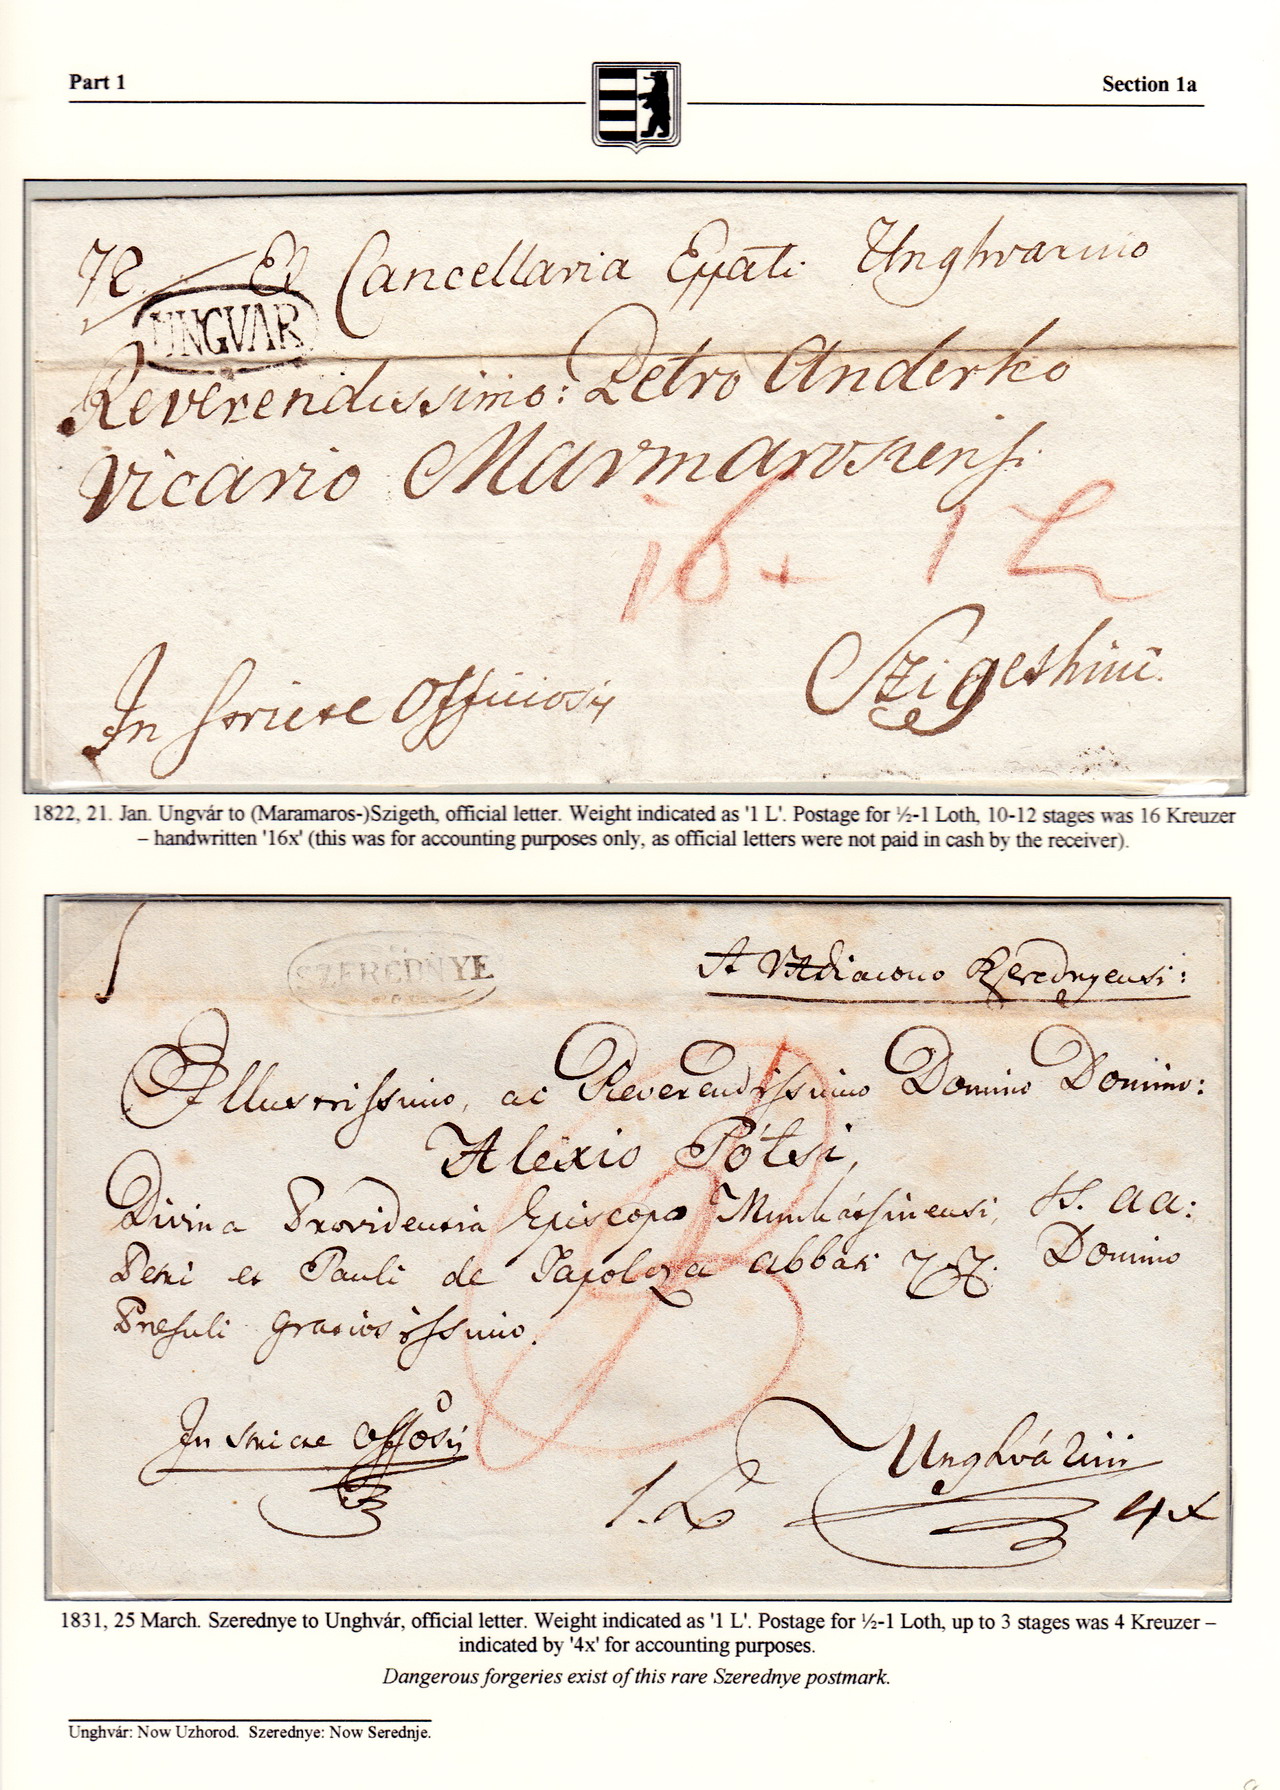 Part 1
Section 1a
Cancellaria Eppati Unghvarino
UNGVAR
Reverendissimo: Petro Anderko
Vicario Marmarosiensi
16x 1 L
In Serie Officiosis
Szigethini.
1822, 21. Jan. Ungvár to (Maramaros-)Szigeth, official letter. Weight indicated as '1 L'. Postage for ½-1 Loth, 10-12 stages was 16 Kreuzer
– handwritten '16x' (this was for accounting purposes only, as official letters were not paid in cash by the receiver).
SZEREDNYE
A VADiacono Szerednyensi:
Illustrissimo, ac Reverendissimo Domino Domino:
Alexio Pótsi,
Divina Providentia Episcopo Munkátsinensi, SS. AA:
Petri et Pauli de Tapolcza Abbati Domino
Presuli Gratiosissimo.
Unghvárini
1. L 4x
1831, 25 March. Szerednye to Unghvár, official letter. Weight indicated as '1 L'. Postage for ½-1 Loth, up to 3 stages was 4 Kreuzer –
indicated by '4x' for accounting purposes.
Dangerous forgeries exist of this rare Szerednye postmark.
Unghvár: Now Uzhorod. Szerednye: Now Serednje.